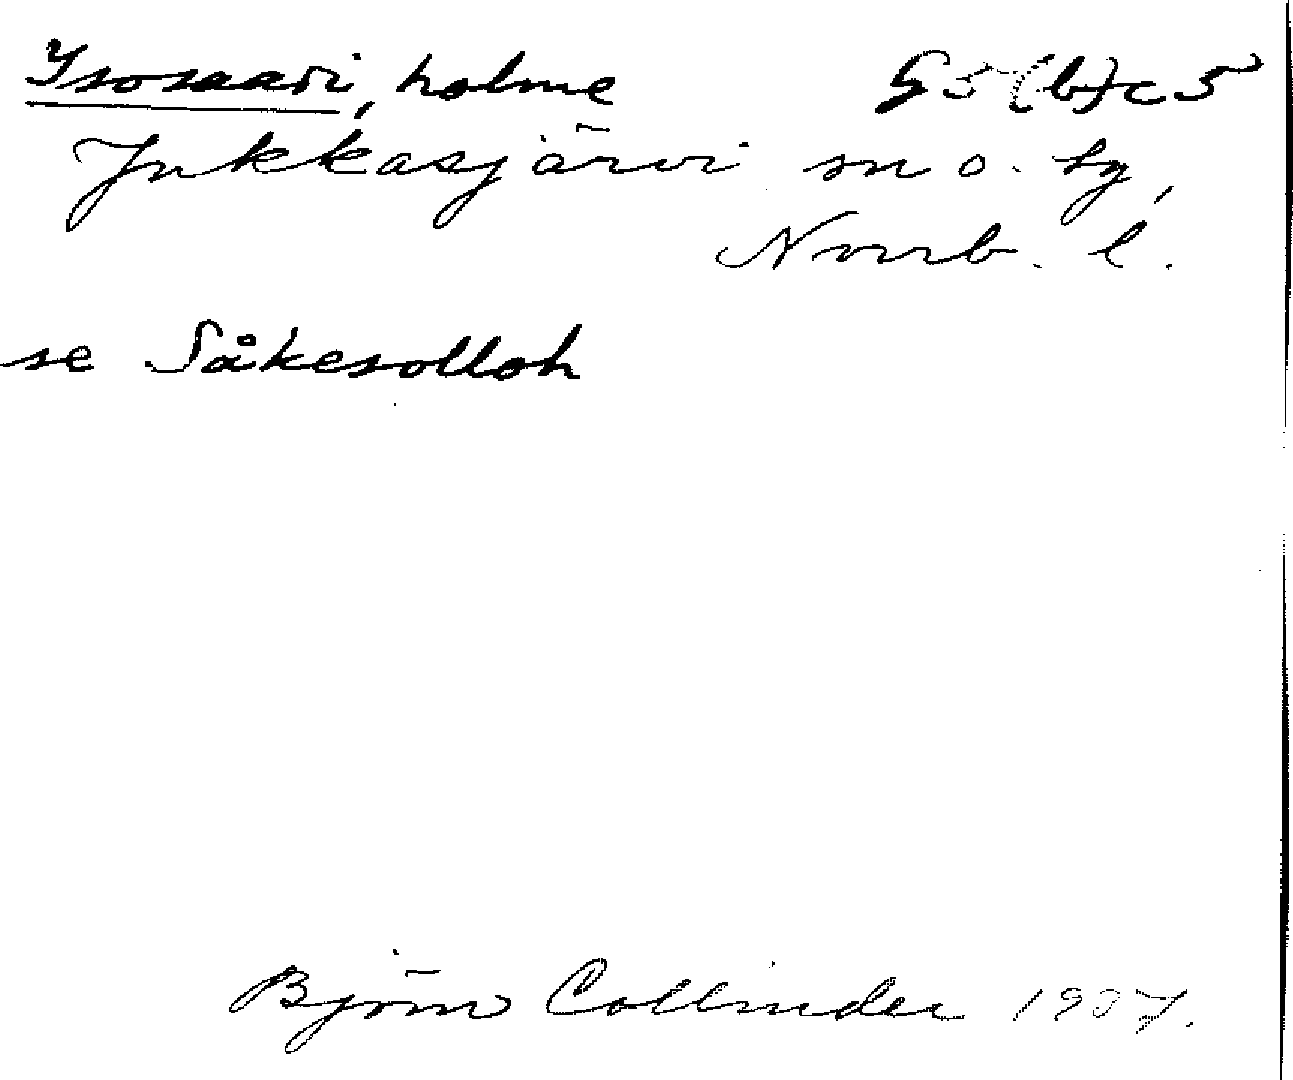 Isosaari, holme G5(b)c5
Jukkasjärvi sn o. tg,
Norrb. l.
se Såkesolloh
Björn Collinder 1937.